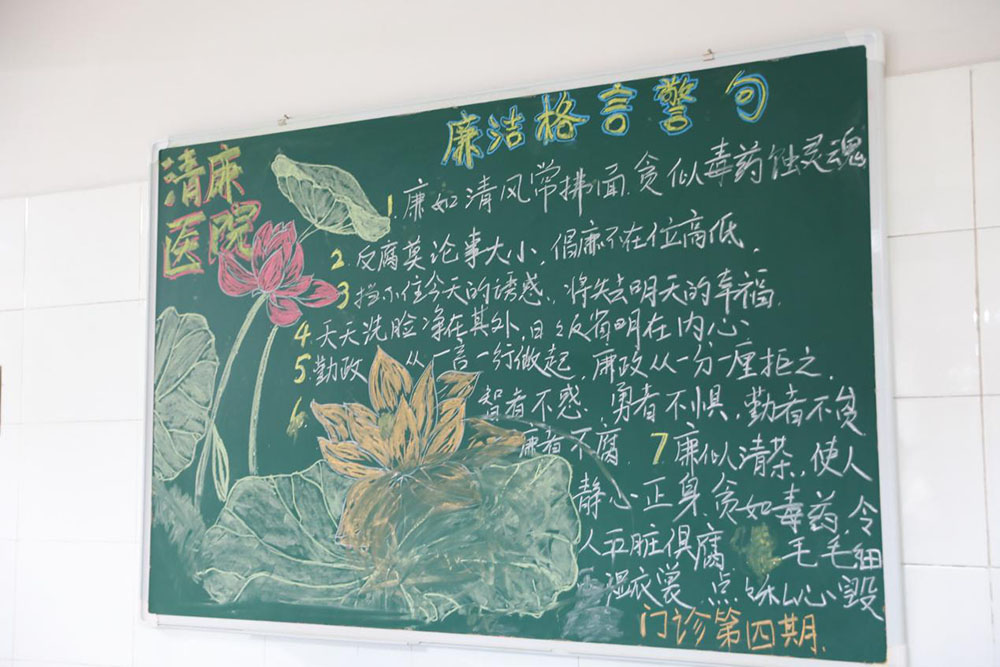 清廉
医院
廉洁格言警句
1 廉如清风常拂面,贪似毒药蚀灵魂
2 反腐莫论事大小,倡廉不在位高低.
3 挡不住今天的诱惑,将失去明天的幸福.
4 天天洗脸净在其外,日日反省明在内心
5 勤政 从一言一行做起,廉政从一分一厘拒之.
6 智者不惑,勇者不惧,勤者不贪
廉者不腐. 7 廉似清茶,使人
静心正身,贪如毒药,令
人五脏俱腐 毛毛细
湿衣裳 点 私心毁
门诊第四期.